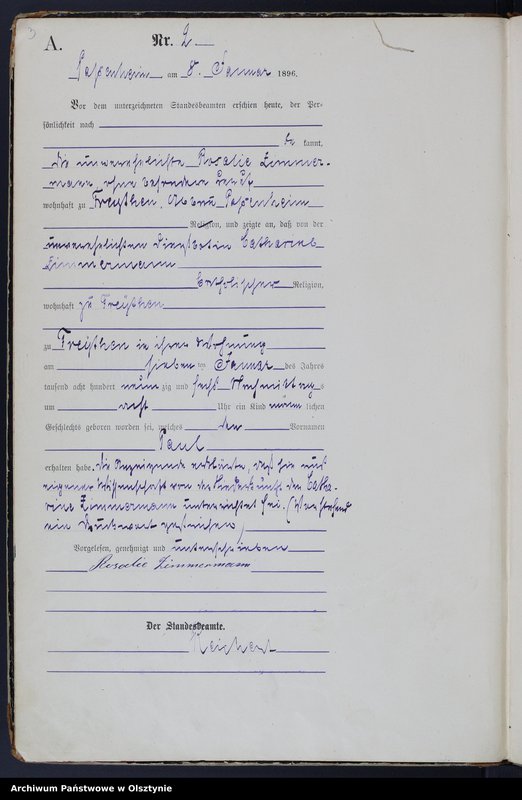 3
A.
Nr. 2
Papenheim am 8. Januar 1896.
Vor dem unterzeichneten Standesbeamten erschien heute, der Per-
sönlichkeit nach
be kannt,
die unverehelichte Rosalie Zimmer-
mann, ohne besonderen
wohnhaft zu Freythen, Abbau Papenheim
Religion, und zeigte an, daß von der
unverehelichten Catharina
Zimmermann
katholischer Religion,
wohnhaft zu Freythen
zu Freythen in ihrer Wohnung
am sieben ten Januar des Jahres
tausend acht hundert neun zig und sechs Nachmittags
um acht Uhr ein Kind männ lichen
Geschlechts geboren worden sei, welches den Vornamen
Paul
erhalten habe. Die Anzeigende erklärte, daß sie aus
eigener Wissenschaft von der Niederkunft der Catha-
rina Zimmermann unterrichtet sei. (Vorstehend
ein Druckwort gestrichen)
Vorgelesen, genehmigt und unterschrieben
Rosalie Zimmermann
Der Standesbeamte.
Reichert
Archiwum Państwowe w Olsztynie